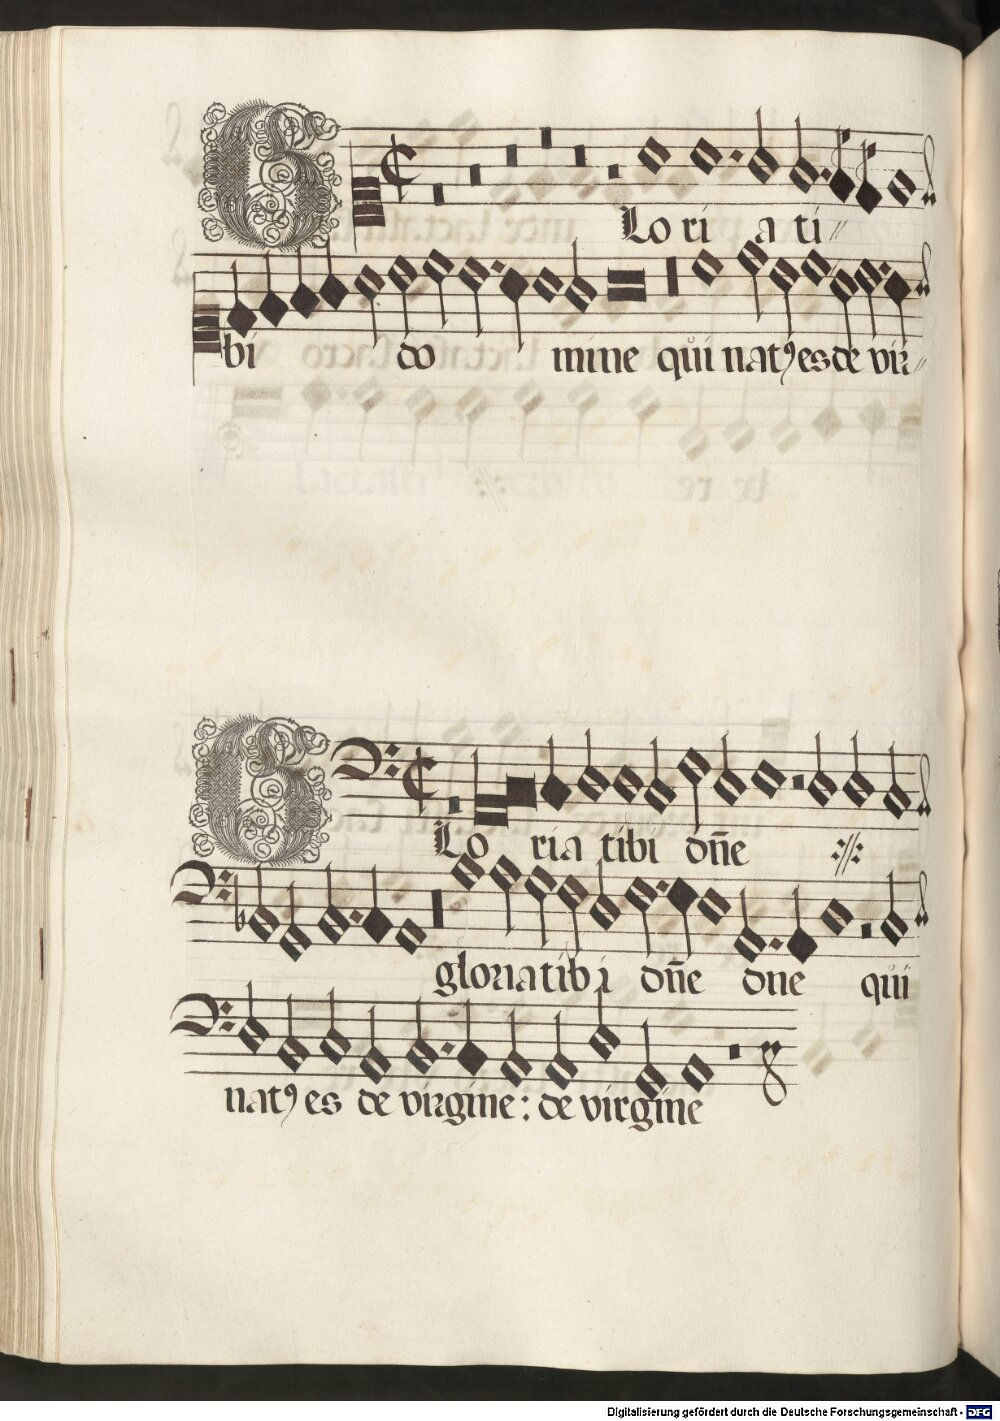 GLo ri a ti〃
bi do mine qui natꝰ es de vir〃
GLo ria tibi dn̄e ·//·
gloria tibi dn̄e dne qui
natꝰ es de virgine : de virgine
Digitalisierung gefördert durch die Deutsche Forschungsgemeinschaft - DFG